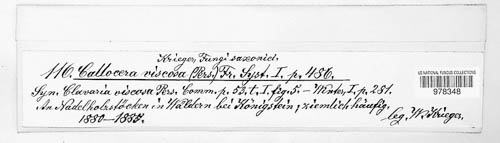 Krieger, Fungi saxonici.
116. Callocera viscosa (Pers.) Fr. Syst. I. p. 486.
Syn. Clavaria viscosa Pers. Comm. p. 53. t. I. fig. 5. – Winter, I. p. 281.
An Nadelholzstöcken in Wäldern bei Königstein, ziemlich häufig.
1880–1885.
leg. W. Krieger.
US NATIONAL FUNGUS COLLECTIONS
978348